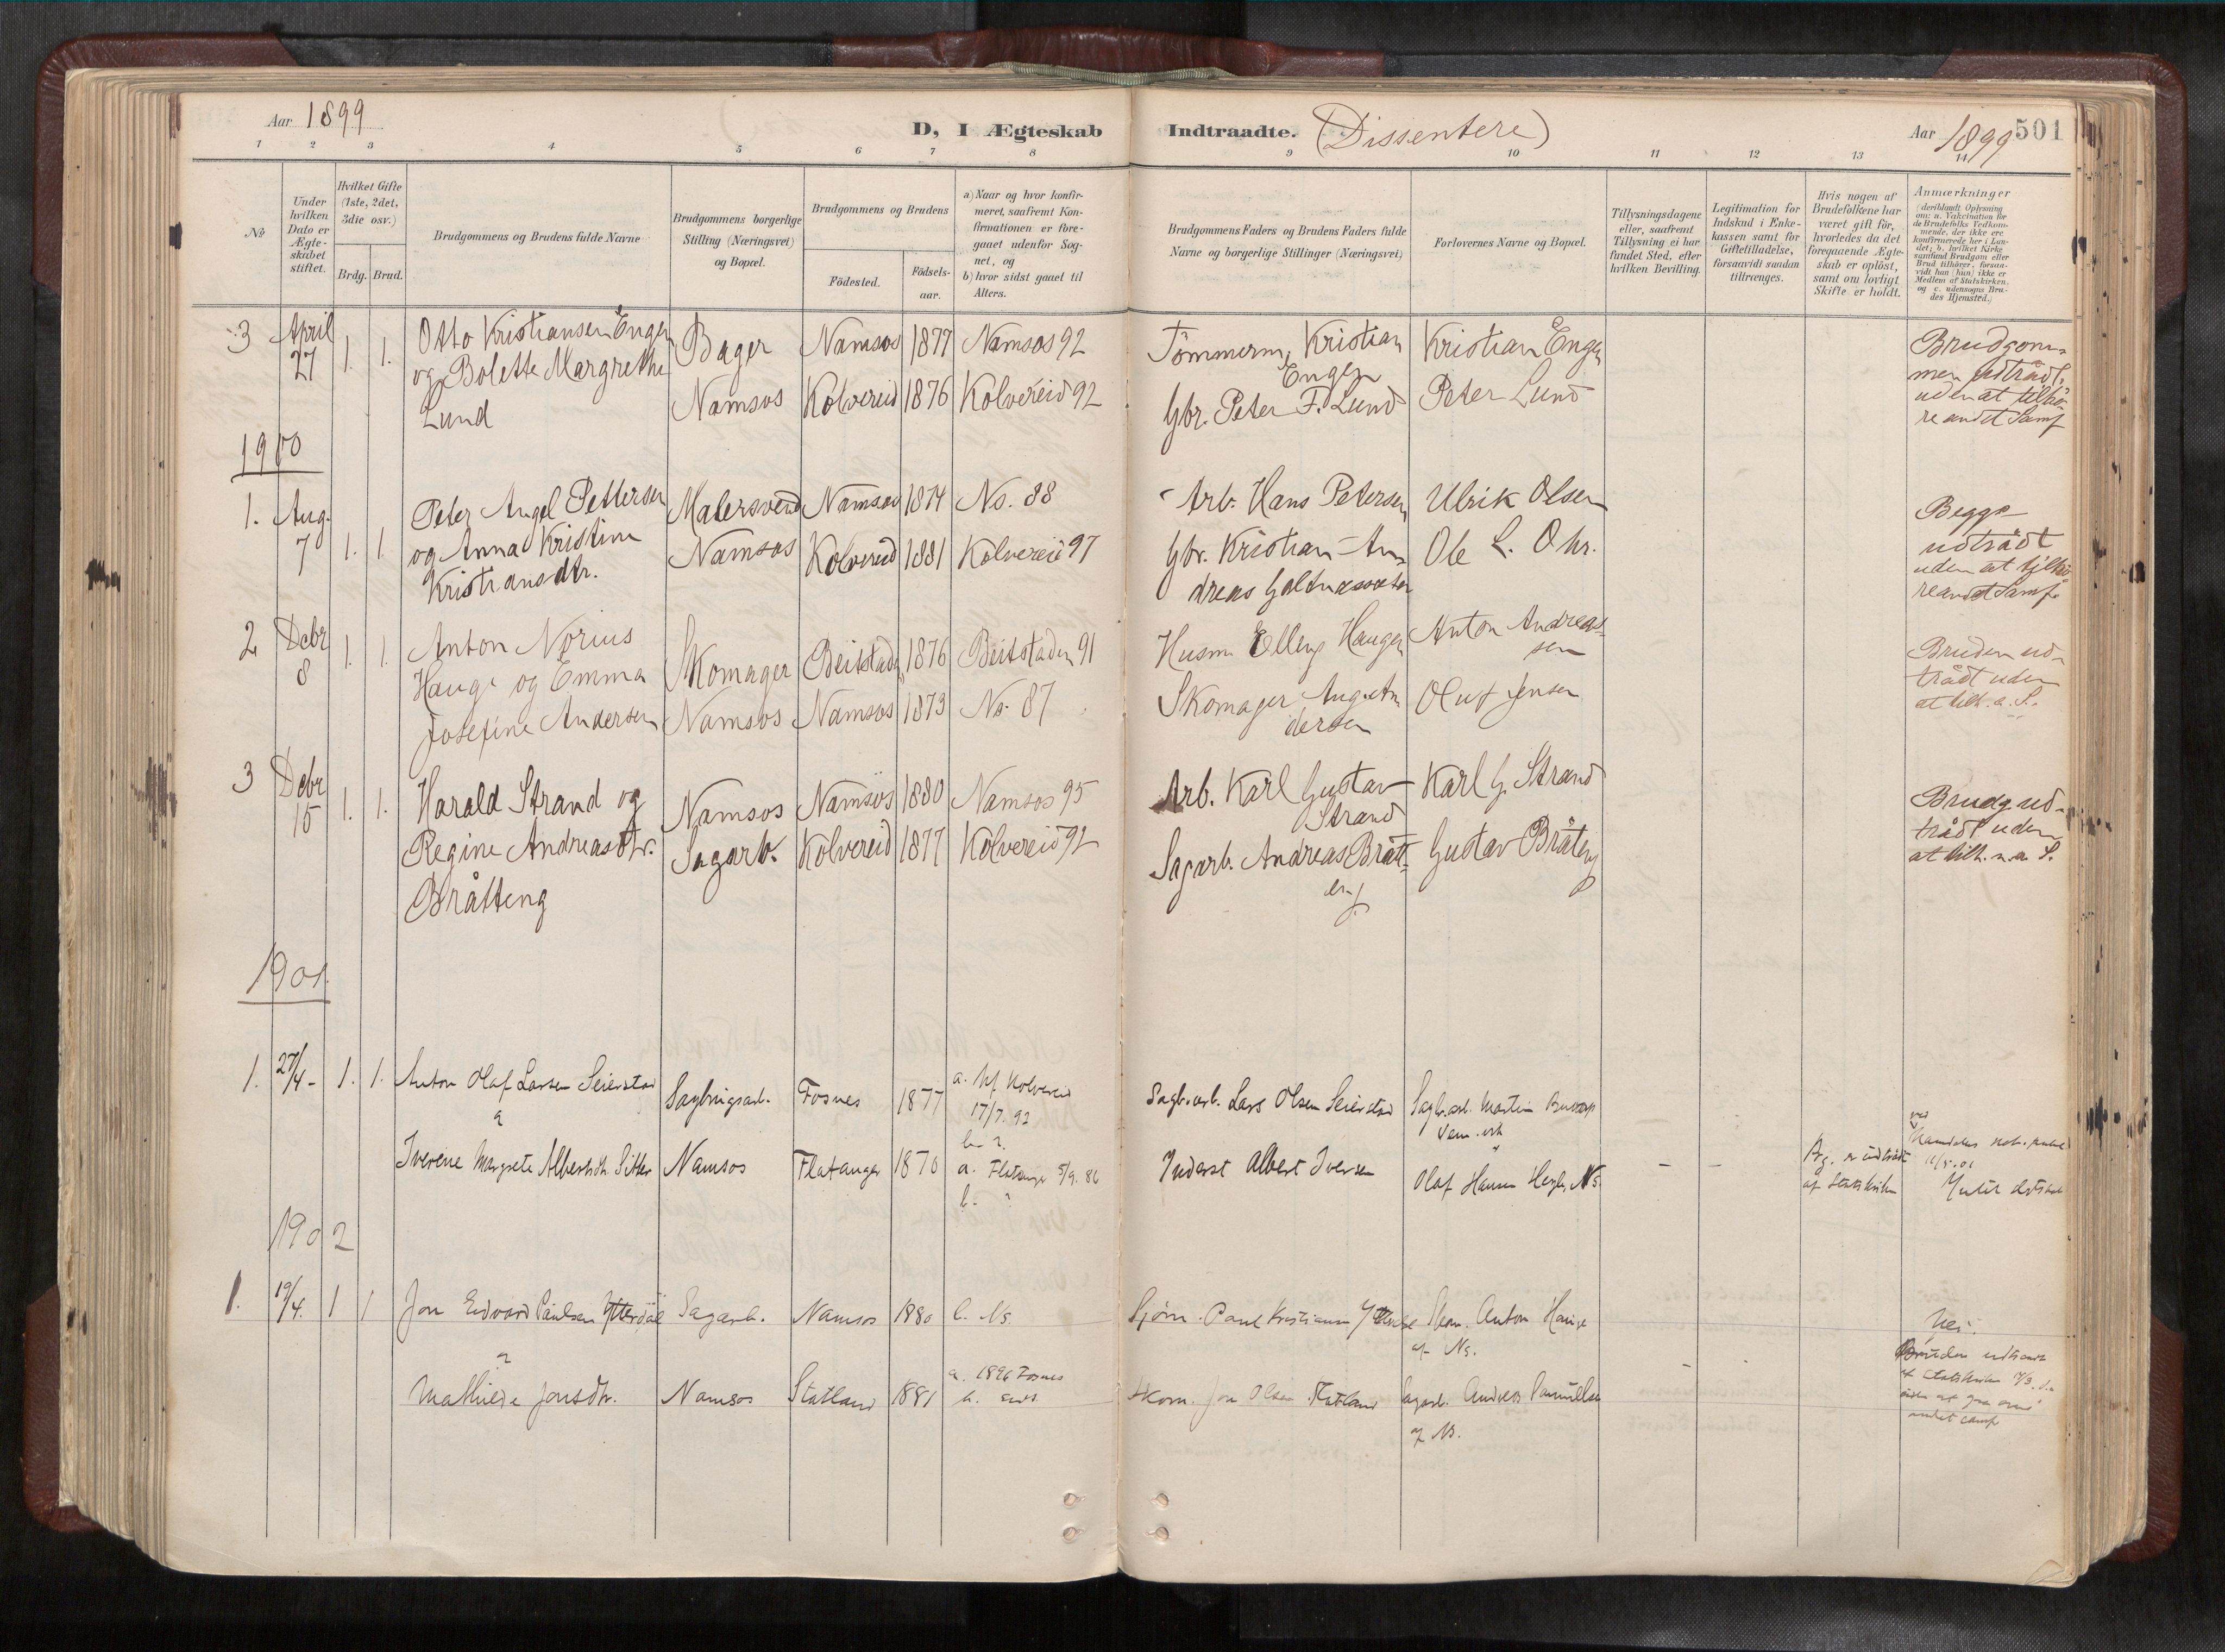 Aar 1899
D, I Ægteskab
Indtraadte. (Dissentere)
Aar 1899 501
1 2 3 4 5 6 7 8 9 10 11 12 13 14
No
Under
hvilken
Dato er
Ægte-
skabet
stiftet.
Hvilket Gifte
(1ste, 2det,
3die osv.)
Brdg. Brud.
Brudgommens og Brudens fulde Navne
Brudgommens borgerlige
Stilling (Næringsvei)
og Bopæl.
Brudgommens og Brudens
Fødested.
Fødsels-
aar.
a) Naar og hvor konfir-
meret, saafremt Kon-
firmationen er fore-
gaaet udenfor Sog-
net, og
b) hvor sidst gaaet til
Alters.
Brudgommens Faders og Brudens Faders fulde
Navne og borgerlige Stillinger (Næringsvei)
Forlovernes Navne og Bopæl.
Tillysningsdagene
eller, saafremt
Tillysning ei har
fundet Sted, efter
hvilken Bevilling.
Legitimation for
Indskud i Enke-
kassen samt for
Giftetilladelse,
forsaavidt saadan
tiltrænges.
Hvis nogen af
Brudefolkene har
været gift før,
hvorledes da det
foregaaende Ægte-
skab er opløst,
samt om lovligt
Skifte er holdt.
Anmærkninger
(deriblandt Oplysning
om: a. Vakcination for
de Brudefolks Vedkom-
mende, der ikke ere
konfirmerede her i Lan-
det; b. hvilket Kirke-
samfund Brudgom eller
Brud tilhører, forsaa-
vidt han (hun) ikke er
Medlem af Statskirken,
og c. udensogns Bru-
des Hjemsted.)
3 April 27 1. 1. Otto Kristiansen Engen
og Bolette Margrethe
Lund
Bager
Namsos
Namsos 1877 Namsos 92
Kolvereid 1876 Kolvereid 92
Tömmerm. Kristian
Engen
Gbr. Peter F. Lund
Kristian Engen
Peter Lund
Brudgom-
men udtrådt,
uden at tilhö-
re andet Samf
1900
1. Aug. 7 1. 1. Peter Angel Pettersen
og Anna Kristine
Kristiansdtr.
Malersvend
Namsos
Namsos 1874 Ns. 88
Kolvereid 1881 Kolvereid 97
Arb. Hans Petersen
Gbr. Kristian An-
dreas
Ulrik Olsen
Ole L. Ohr.
Begge
udtrådt
uden at tilhö-
re andet Samf.
2 Decbr 8 1. 1. Anton Norius
Hauge og Emma
Josefine Andersen
Skomager
Namsos
Beitstad 1876 Beitstaden 91
Namsos 1873 Ns. 87
Husm. Elling Haugen
Skomager Aug. An-
dersen
Anton Andreas-
sen
Oluf Jensen
Bruden ud-
trådt uden
at tilh. a. S.
3 Decbr 15 1. 1. Harald Strand og
Regine Andreasdtr.
Bråtteng
Namsos
Sagarb.
Namsos 1880 Namsos 95
Kolvereid 1877 Kolvereid 92
Arb. Karl Gustav
Strand
Sagarb. Andreas Brått-
eng
Karl G. Strand
Gustav Bråteng
Brudg. ud-
trådt uden
at tilh. n. a. S.
1901.
1. 27/4 - 1. 1. Anton Olaf Larsen Seierstad
Iverene Margrete Albertsdtr. Sitter
Sagbrugsarb.
Namsos
Fosnes 1877
Flatanger 1870
a. Kolvereid
17/7. 92
b. ?
a. Flatanger 5/9. 86
b. ?
Sagb.arb. Lars Olsen Seierstad
Inderst Albert Iversen
Sagb.arb. Martin
Olaf Hansen Ns.
- -
Brg. er udtrådt
af Statskirken
1902
1. 19/4. 1 1 Jon Edvard Paulsen Ytterdal
Mathilde Jonsdtr.
Sagarb.
Namsos
Namsos 1880 b. Ns.
Statland 1881
a. 1896 Fosnes
Sjöm. Paul Kristiansen
Skom. Jon Olsen Statland
Skom. Anton Hauge
af Ns.
Sagarb. Andreas
af Ns.
- -
Nei.
Bruden udtraadt
af Statskirken
andet samf